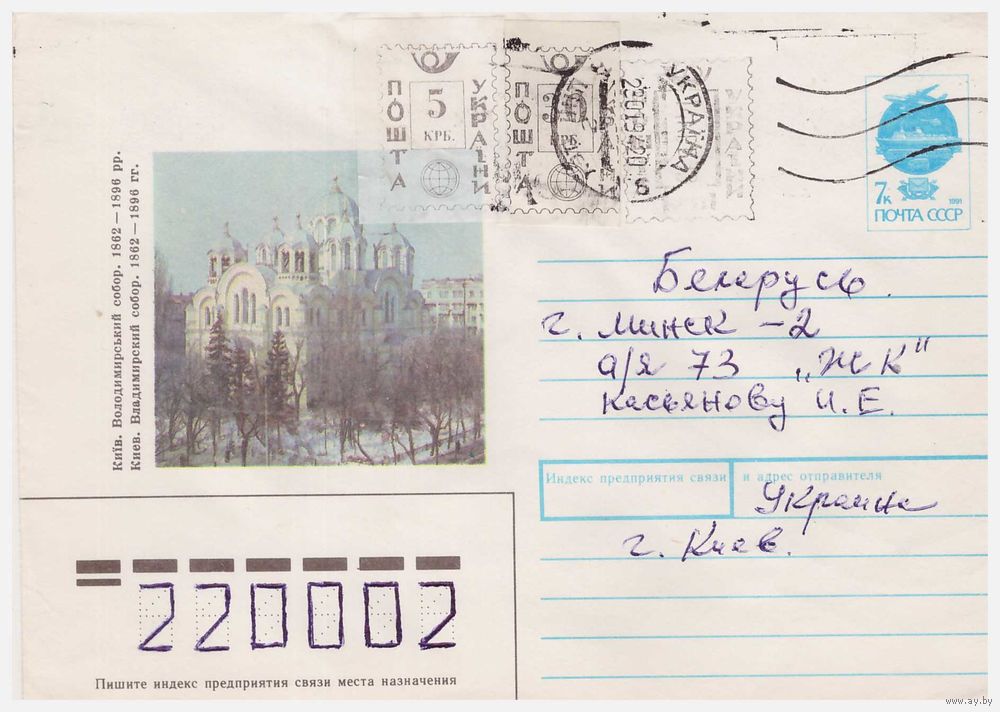 ПОШТА
5
КРБ.
УКРАЇНИ
ПОШТА
УКРАЇНА
28019420
S
7к
1991
ПОЧТА СССР
Київ. Володимирський собор. 1862—1896 рр.
Киев. Владимирский собор. 1862—1896 гг.
Беларусь
г. Минск -2
а/я 73 „ЖК"
Касьянову И.Е.
Индекс предприятия связи и адрес отправителя
Украина
г. Киев.
220002
Пишите индекс предприятия связи места назначения
www.ay.by